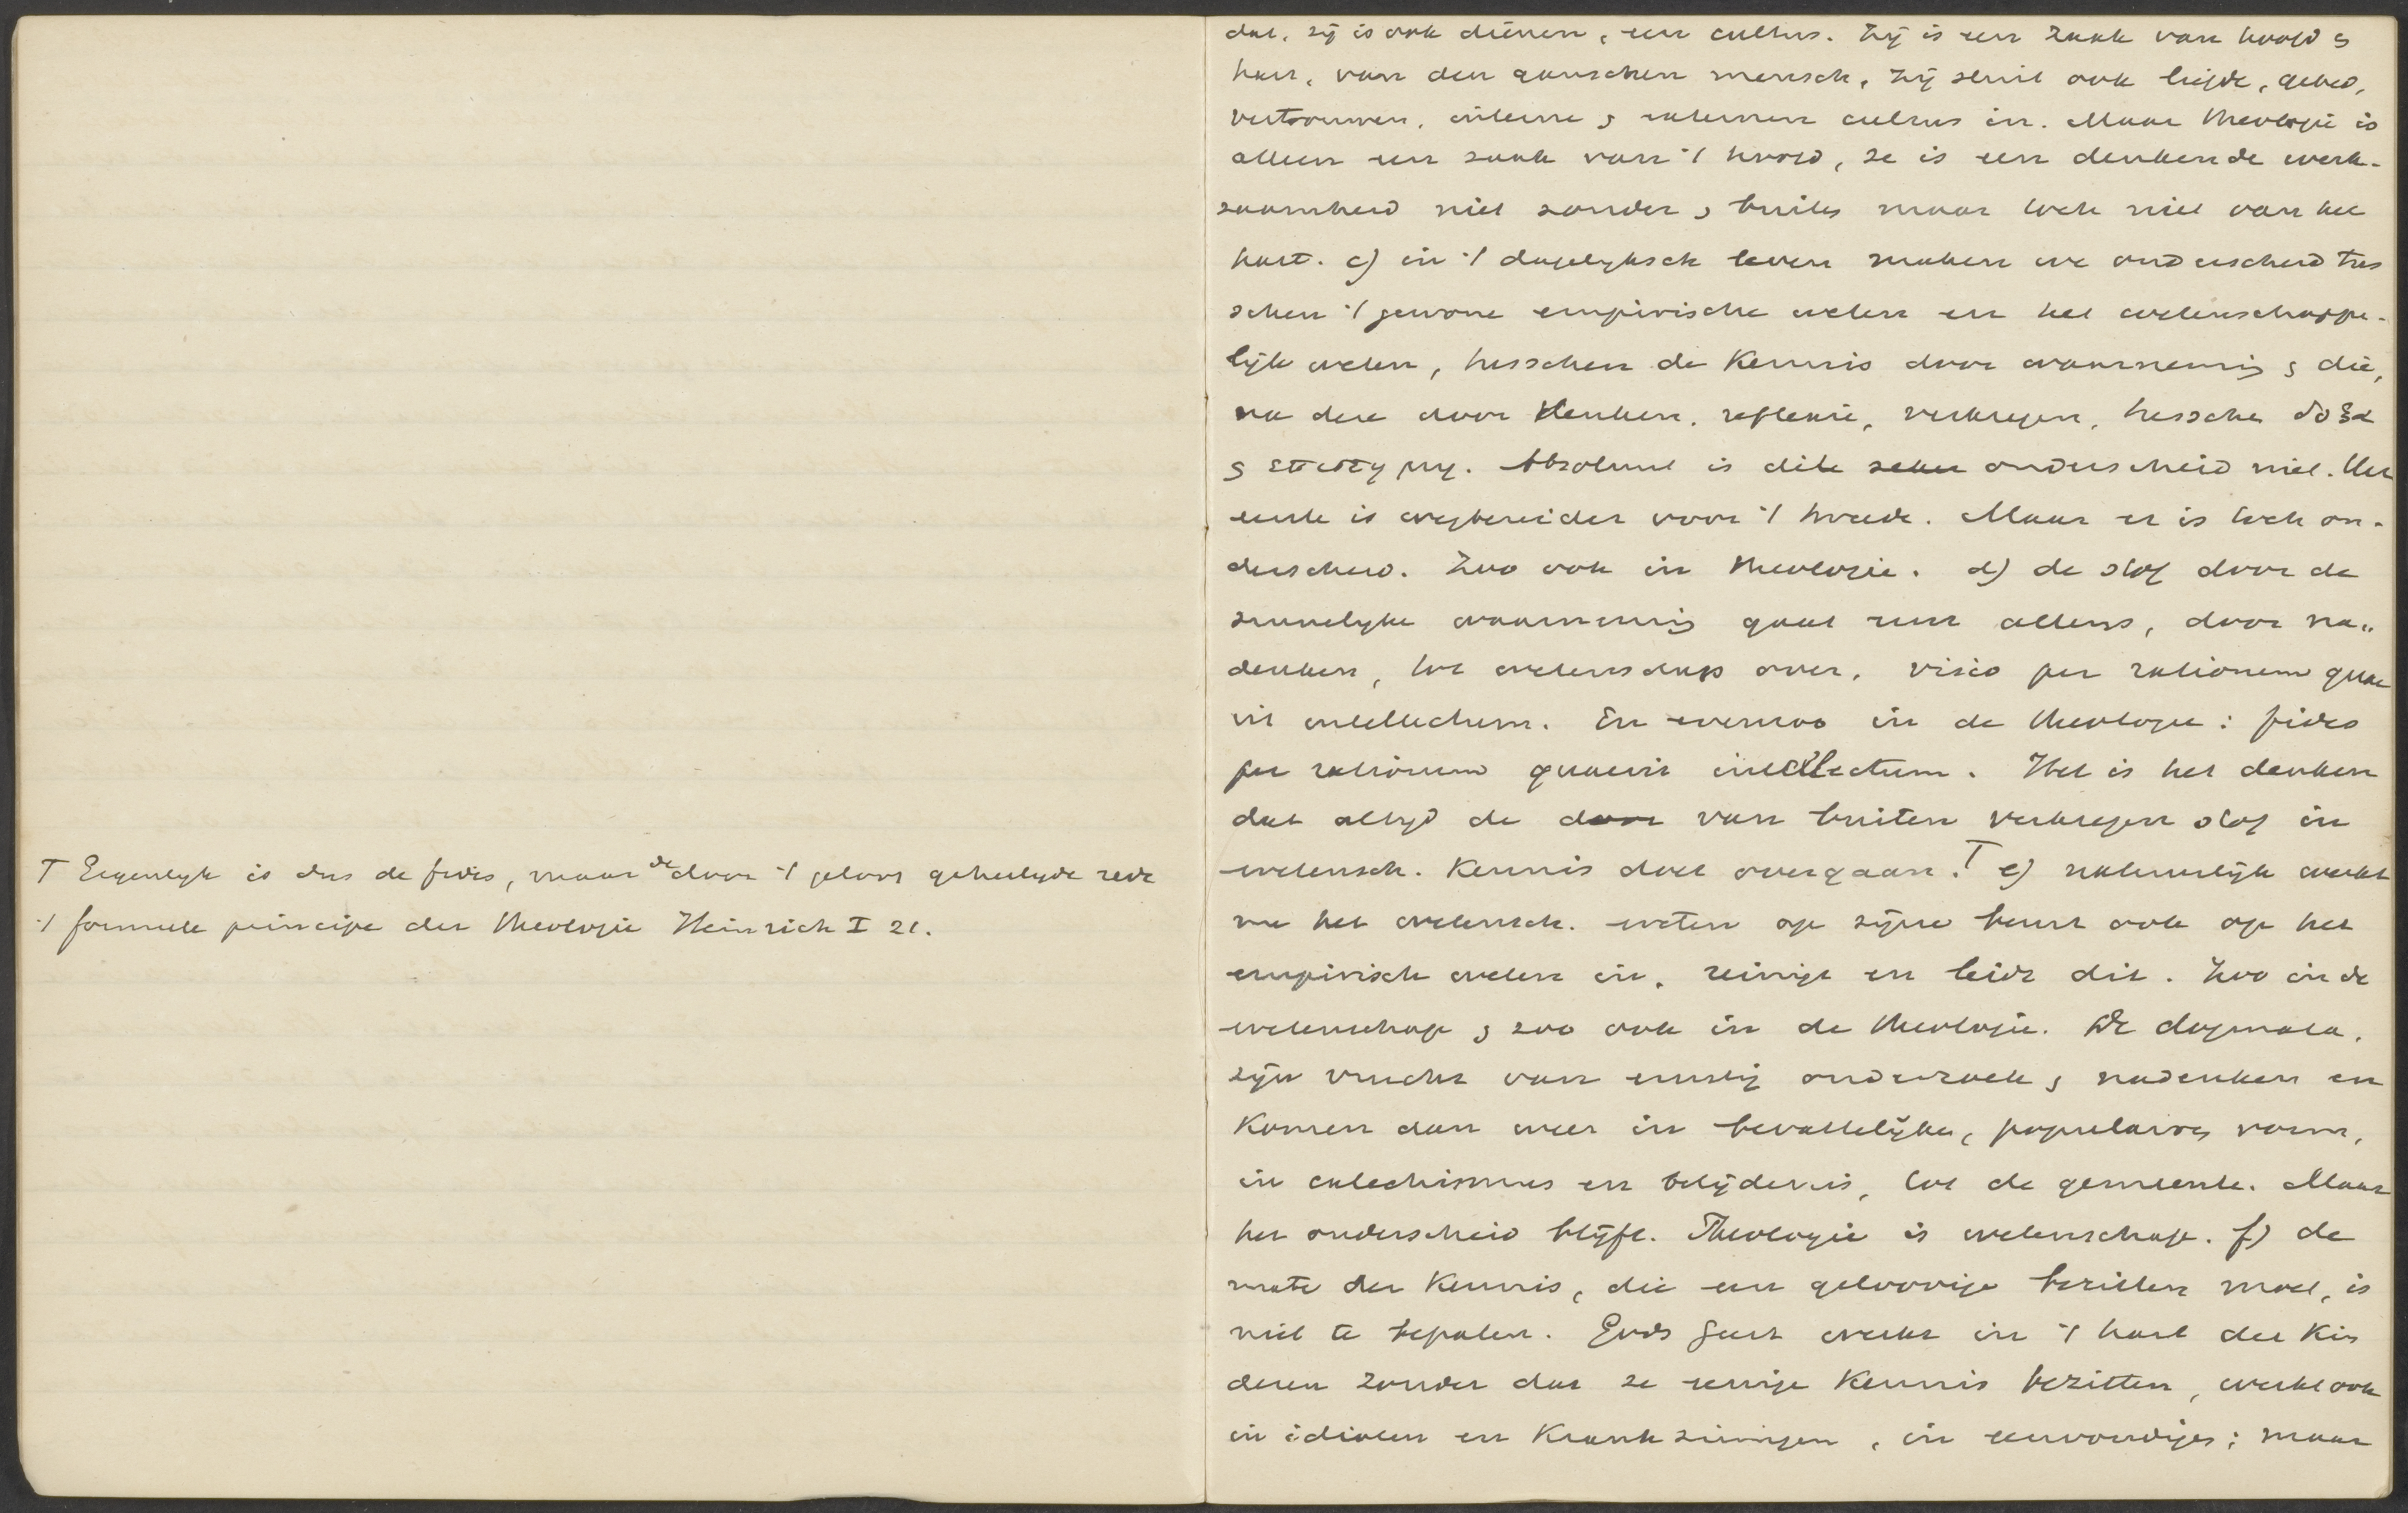 T Eigenlyk is dus de fides, maar de door 't geloof geheiligde rede
't formeele principe der theologie Heinrich I 21.
dat, zij is ook dienen, een cultus. Zij is een zaak van hoofd &
hart, van den ganschen mensch, zij sluit ook liefde, gebed,
vertrouwen, interne & externen cultus in. Maar theologie is
alleen een zaak van 't hoofd, ze is een denkende werk-
zaamheid niet zonder & buiten maar toch niet van het
hart. c) in 't dagelyksch leven maken we onderscheid tus
schen 't gewone empirische weten en het wetenschappe-
lijk weten, tusschen de kennis door waarneming & die,
na deze door denken, reflexie, verkregen, tusschen δοξα
& επιστημη. Absoluut is dit zeker onderscheid niet. Het
eerste is wegbereider voor 't tweede. Maar er is toch on-
derscheid. Zoo ook in theologie. d) de stof door de
zinnelyke waarneming gaat eerst allengs, door na„
denken, tot wetenschap over, visio per rationem quae
rit intellectum. En evenzoo in de theologie: fides
per rationem quaerit intellectum. Het is het denken
dat altyd de door van buiten verkregen stof in
wetensch. kennis doet overgaan. T e) natuurlijk werkt
nu het wetensch. weten op zijne beurt ook op het
empirisch weten in, reinigt en leidt dit. Zoo in de
wetenschap & zoo ook in de theologie. De dogmata,
zijn vrucht van ernstig onderzoek & nadenken en
komen dan weer in bevattelijke, populairen vorm,
in catechismus en belijdenis, tot de gemeente. Maar
het onderscheid blijft. Theologie is wetenschap. f) de
mate der kennis, die een geloovige bezitten moet, is
niet te bepalen. Gods Geest werkt in 't hart der kin
deren zonder dat ze eenige kennis bezitten, werkt ook
in idioten en krankzinnigen, in eenvoudigen; maar